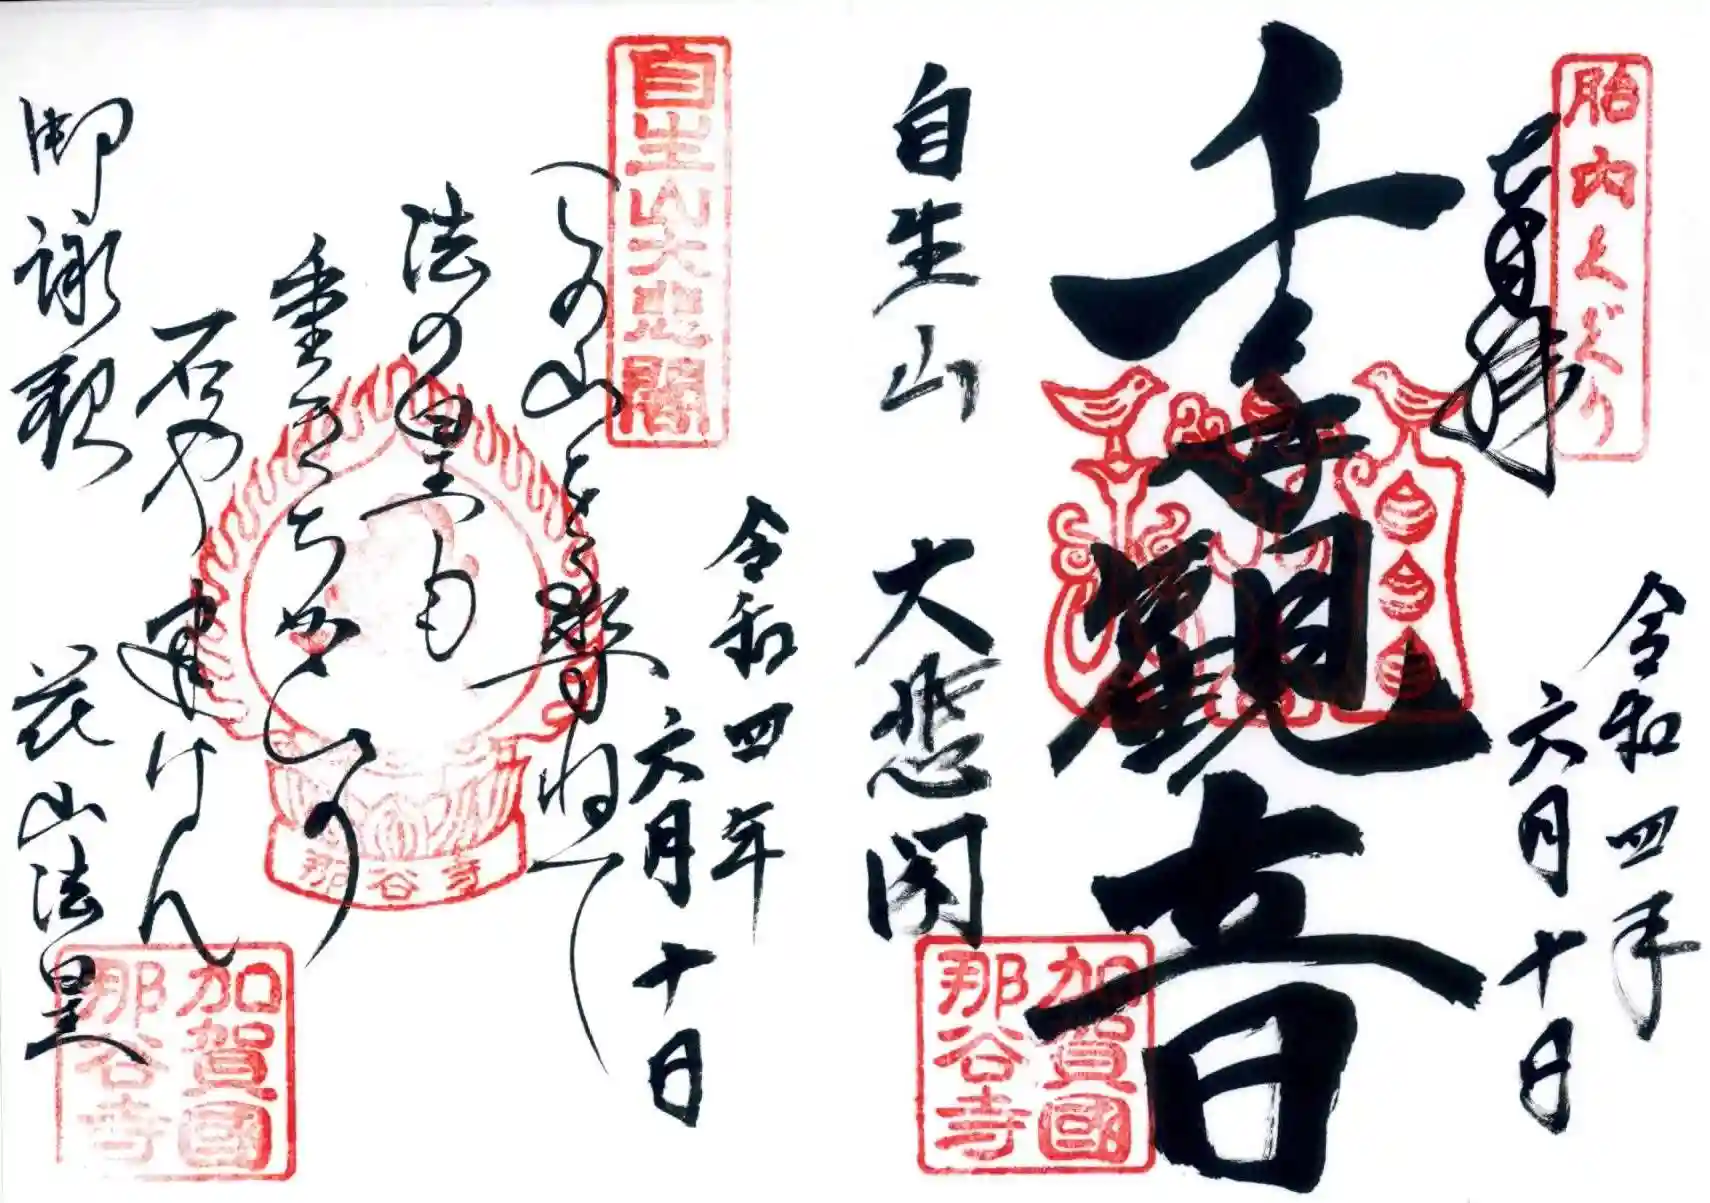 胎内くぐり
奉拝
令和四年
六月十日
千手觀音
自生山
大悲閣
加賀國
那谷寺
自生山大悲閣
令和四年
六月十日
この山を
尋ねて
法の皇も
重き
ちかひの
石や
建けん
花山法皇
御詠歌
那谷寺
加賀國
那谷寺